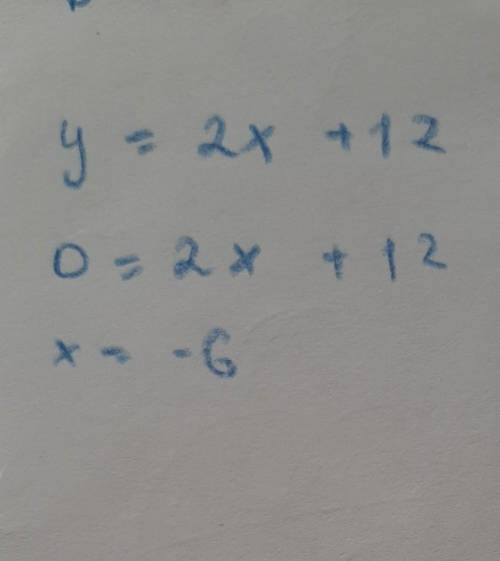 y = 2x + 12
0 = 2x + 12
x = -6